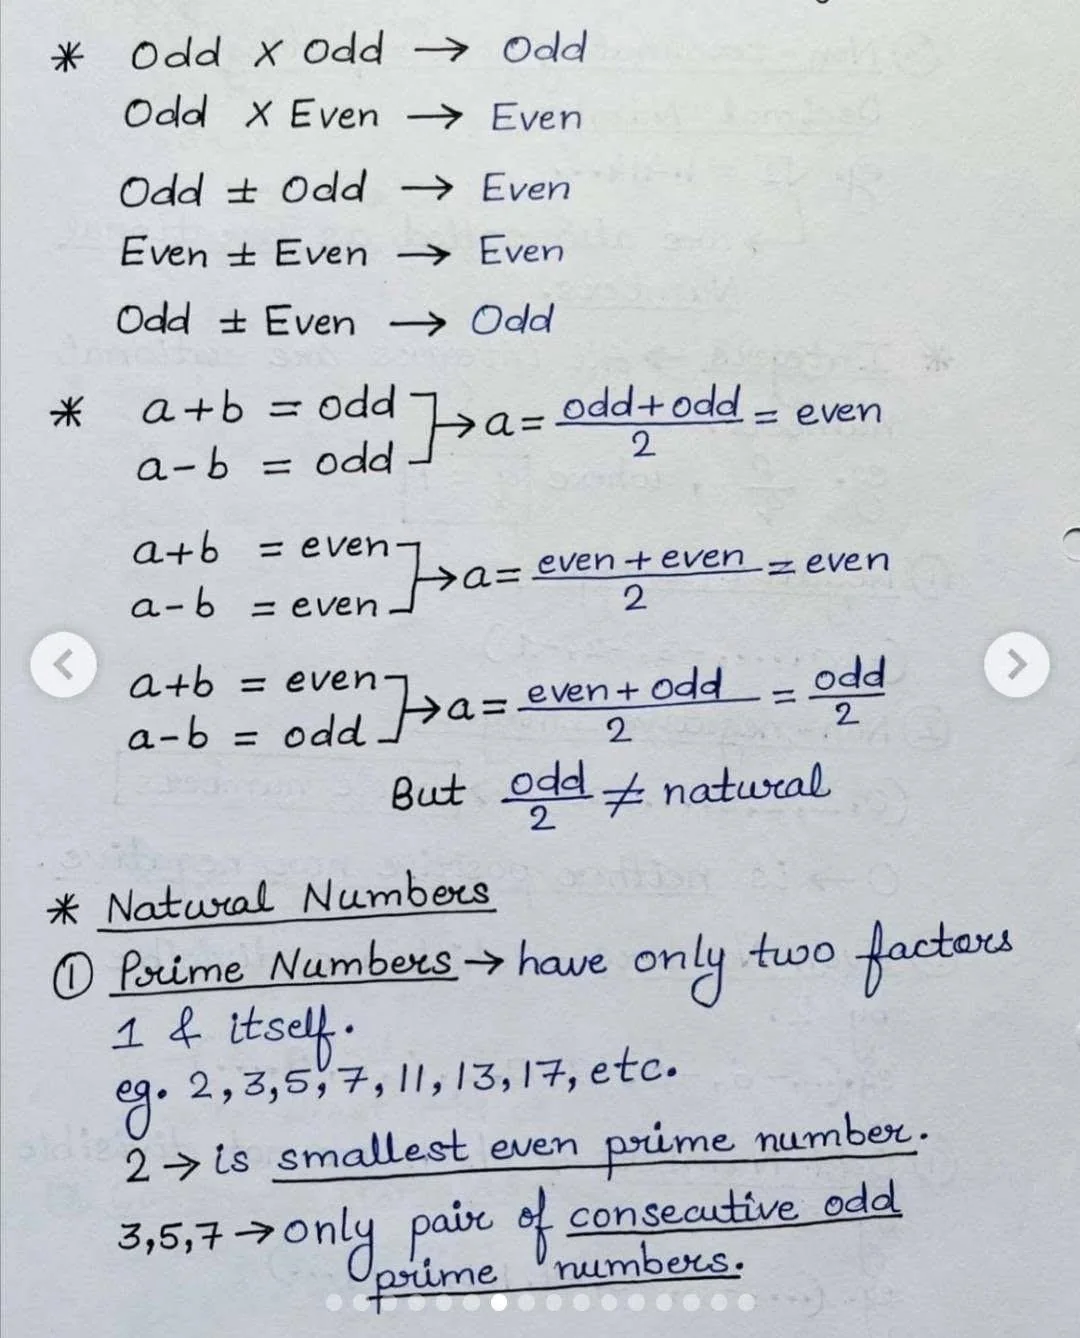 * Odd × Odd → Odd
Odd × Even → Even
Odd ± Odd → Even
Even ± Even → Even
Odd ± Even → Odd
* a+b = odd
a-b = odd ] → a = odd+odd/2 = even
a+b = even
a-b = even ] → a = even+even/2 = even
a+b = even
a-b = odd ] → a = even+odd/2 = odd/2
But odd/2 ≠ natural
* Natural Numbers
① Prime Numbers → have only two factors
1 & itself.
eg. 2, 3, 5, 7, 11, 13, 17, etc.
2 → is smallest even prime number.
3,5,7 → only pair of consecutive odd
prime numbers.